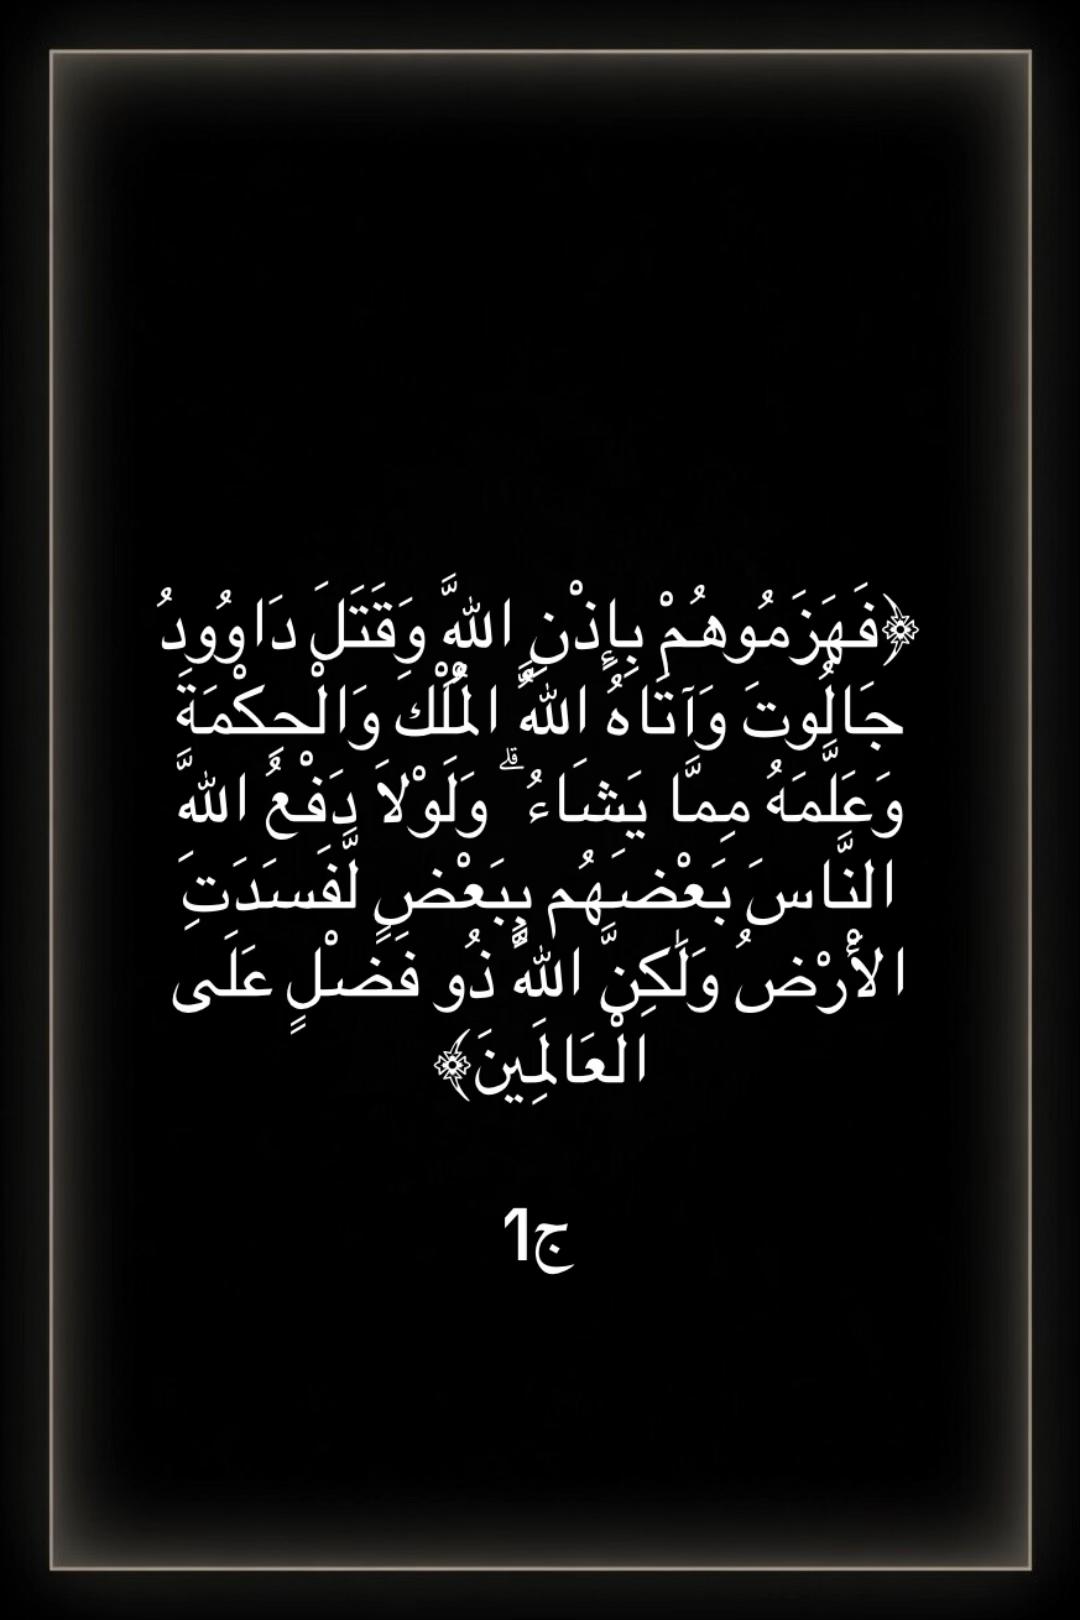 ﴿فَهَزَمُوهُمْ بِإِذْنِ اللهَِّ وَقَتَلَ دَاوُودُ
جَالُوتَ وَآتَاهُ اللهَُّ الْمُلْكَ وَالْحِكْمَةَ
وَعَلَّمَهُ مِمَّا يَشَاءُ ۗ وَلَوْلَا دَفْعُ اللهَِّ
النَّاسَ بَعْضَهُم بِبَعْضٍ لَّفَسَدَتِ
الْأَرْضُ وَلَٰكِنَّ اللهََّ ذُو فَضْلٍ عَلَى
الْعَالَمِينَ﴾
ج1